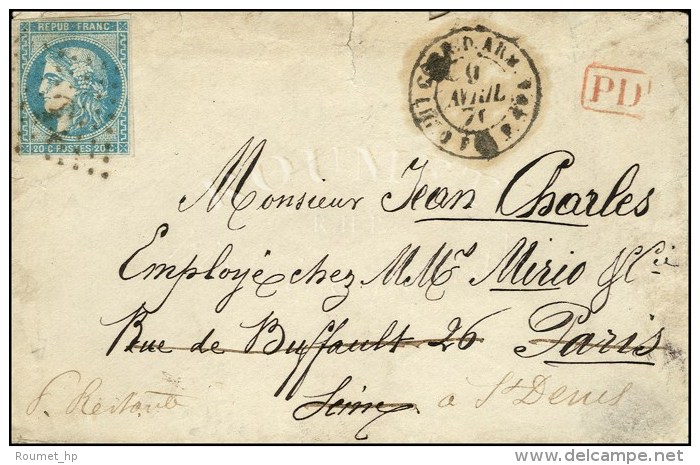 REPUB. FRANC
20 C POSTES 20 C
AVRIL
PD
Monsieur Jean Charles
Employé chez MMrs Mirio & Cie
Rue de Buffault 26 Paris
Seine à St Denis
Roumet_hp
delcampe.net